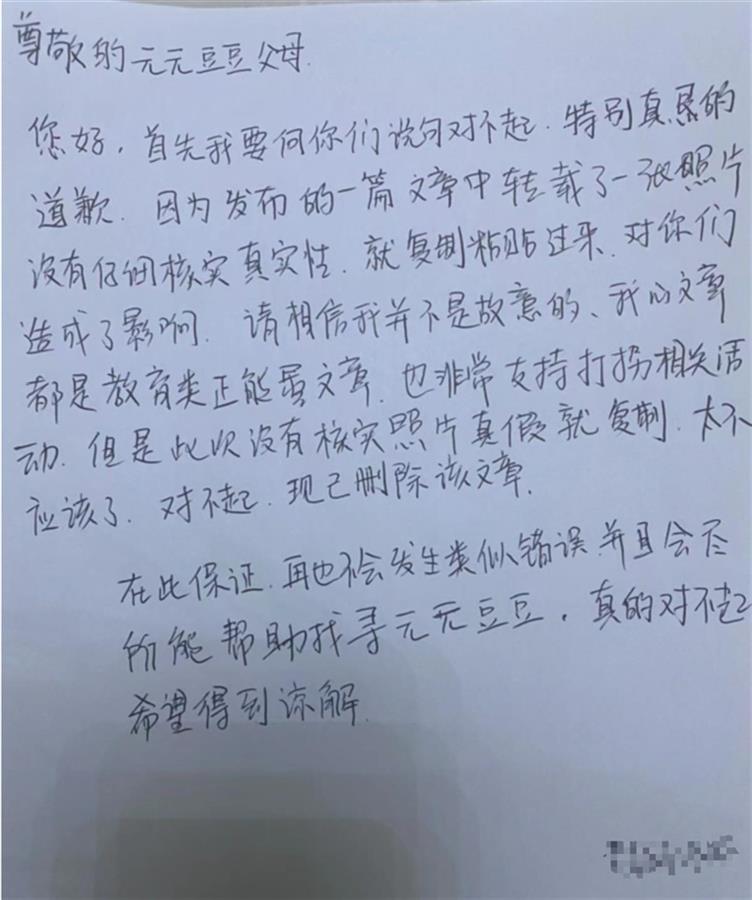 尊敬的元元豆豆父母.
您好,首先我要向你们说句对不起.特别真恳的
道歉.因为发布的一篇文章中转载了一张照片
没有仔细核实真实性.就复制粘贴过来.对你们
造成了影响.请相信我并不是故意的、我的文章
都是教育类正能量文章.也非常支持打拐相关活
动.但是此次没有核实照片真假就复制.太不
应该了.对不起.现已删除该文章.
在此保证.再也不会发生类似错误.并且会尽
所能帮助找寻元元豆豆,真的对不起
希望得到谅解.